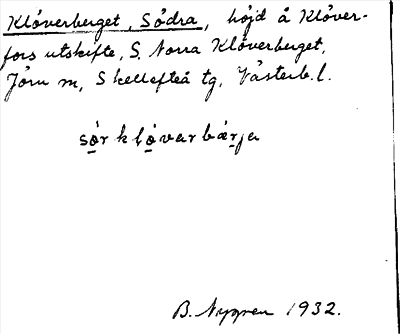 Klöverberget, Södra, höjd å Klöver-
fors utskifte, S. Norra Klöverberget,
Jörn sn, Skellefteå tg, Västerb. l.
sör klövarbärja
B. Nygren 1932.